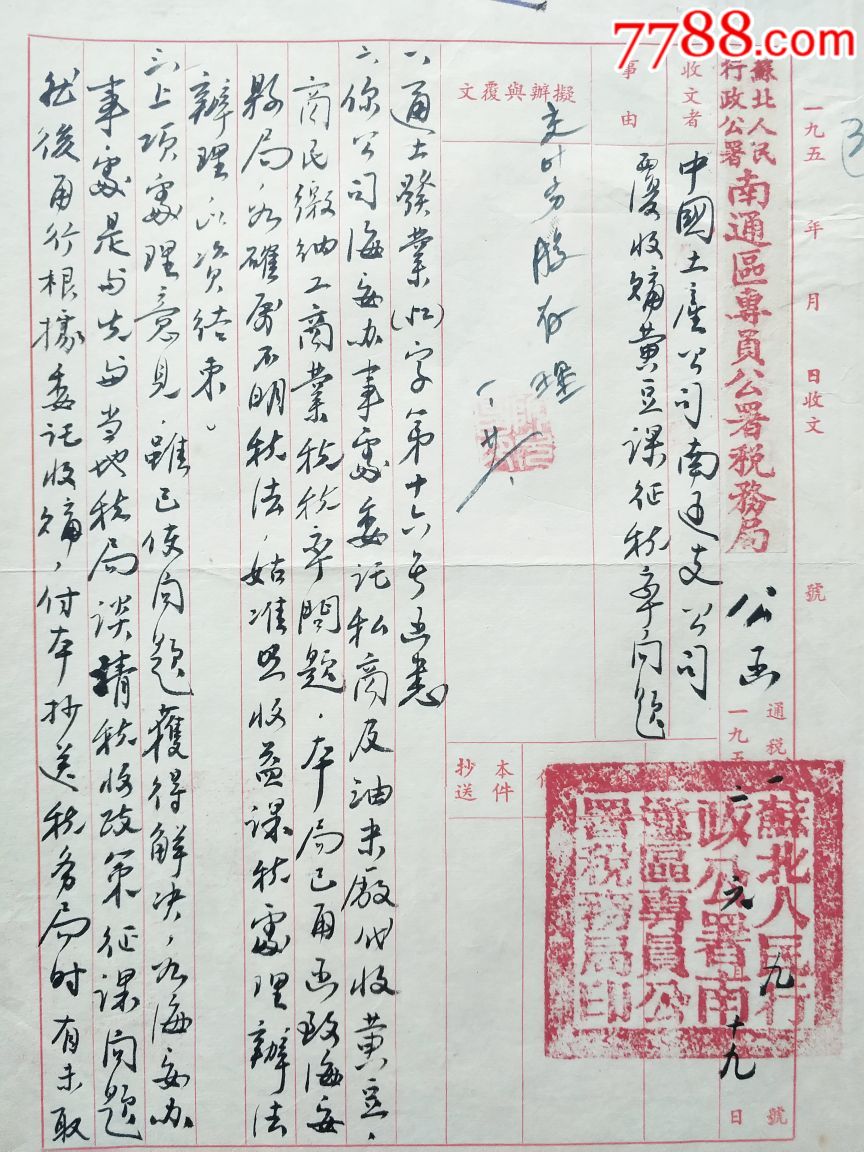 7788.com
一九五 年 月 日收文 號
蘇北人民
行政公署
南通區專員公署稅務局 公函
通稅 一 九 號
一九五二 元 十九 日
蘇北人民行
政公署南
通區專員公
署税務局印
收文者 中國土產公司南通支公司
事由 覆收購黄豆課征税率问题
擬辦與覆文
本件
抄送
一、通土發業(51)字第十六号函悉
二、你公司海安办事處委託私商及油米廠代收黄豆、
商民缴纳工商業税税率問題，本局已函致海安
縣局，如確屬不明税法，姑准照收益課税處理辦法
辦理以资结束。
三、上項處理意見，雖已使问题獲得解决，如海安办
事處是否先与当地税局谈请税收政策征課问题
然後再行根據委託收購，付本抄送税务局时有未取